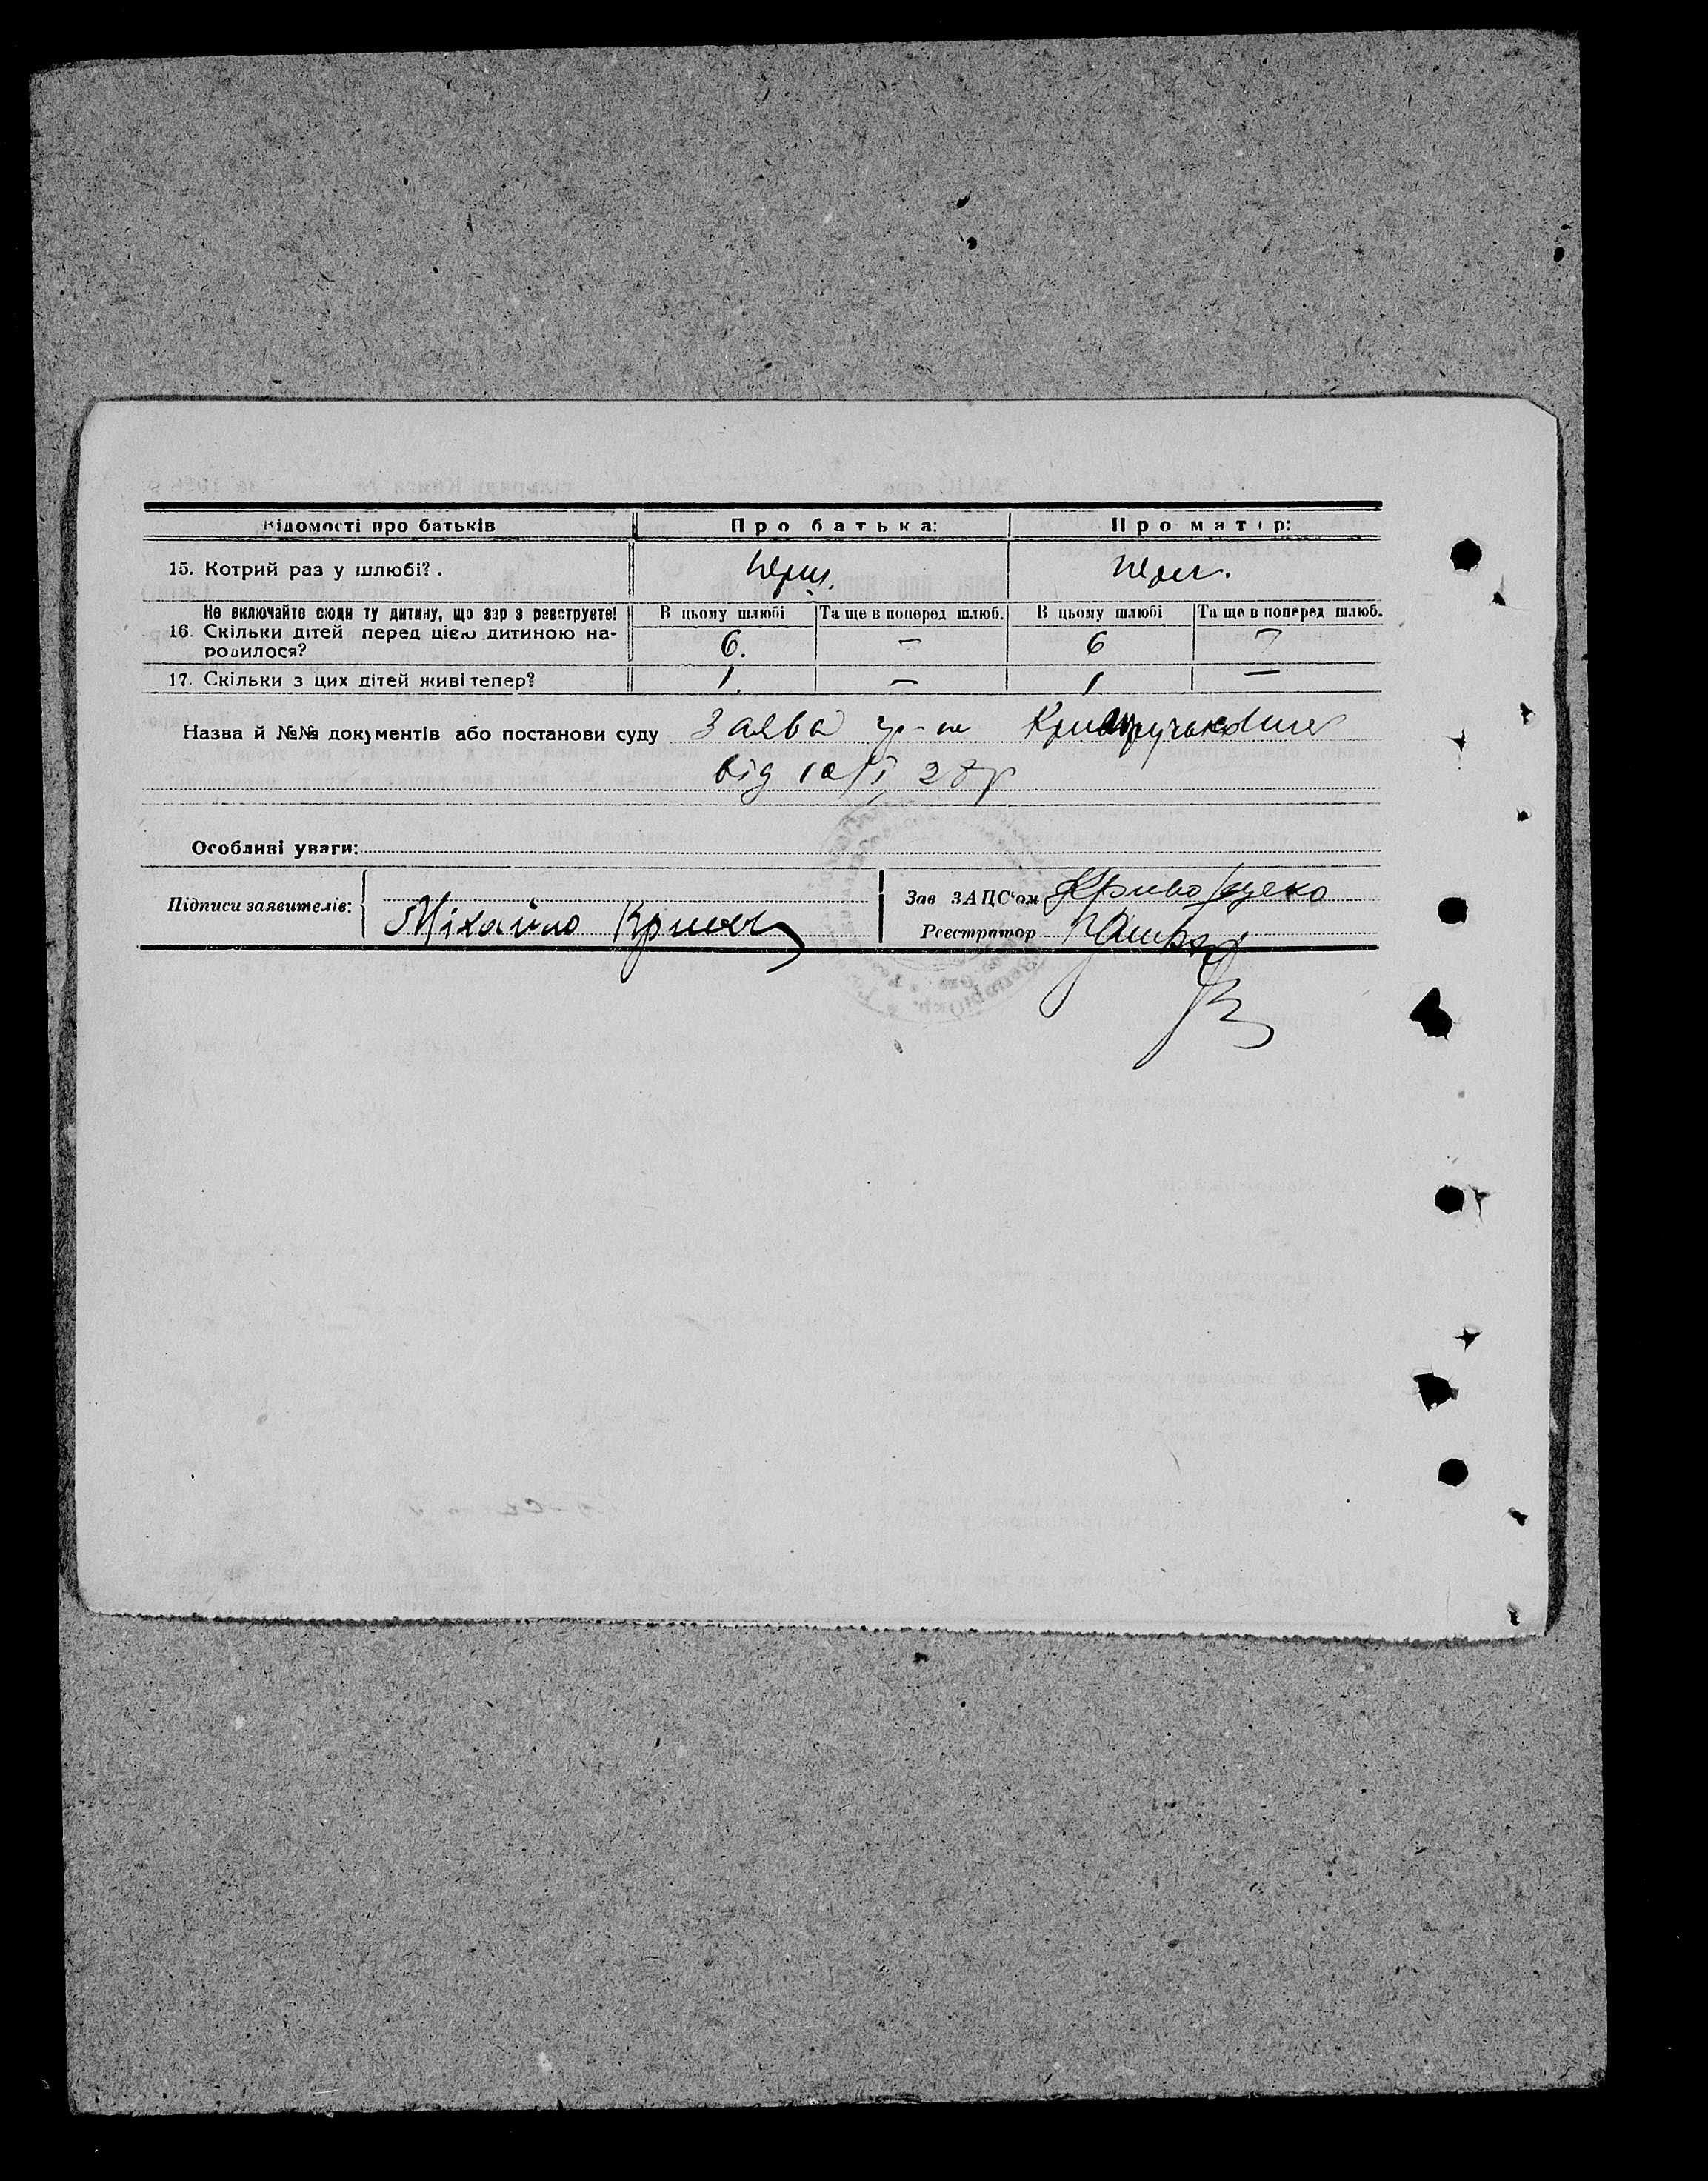 Відомості про батьків Про батька: Про матір:
15. Котрий раз у шлюбі?. перш. перш.
Не включайте сюди ту дитину, що зар з реєструєте! В цьому шлюбі Та ще в поперед шлюб. В цьому шлюбі Та ще в поперед шлюб.
16. Скільки дітей перед цією дитиною на-
родилося? 6. — 6 —
17. Скільки з цих дітей живі тепер? 1. — 1 —
Назва й №№ документів або постанови суду Заява гр-на
від 10/I 28р
Особливі уваги:
Підписи заявителів: Зав ЗАЦС'ом
Михайло Реєстратор